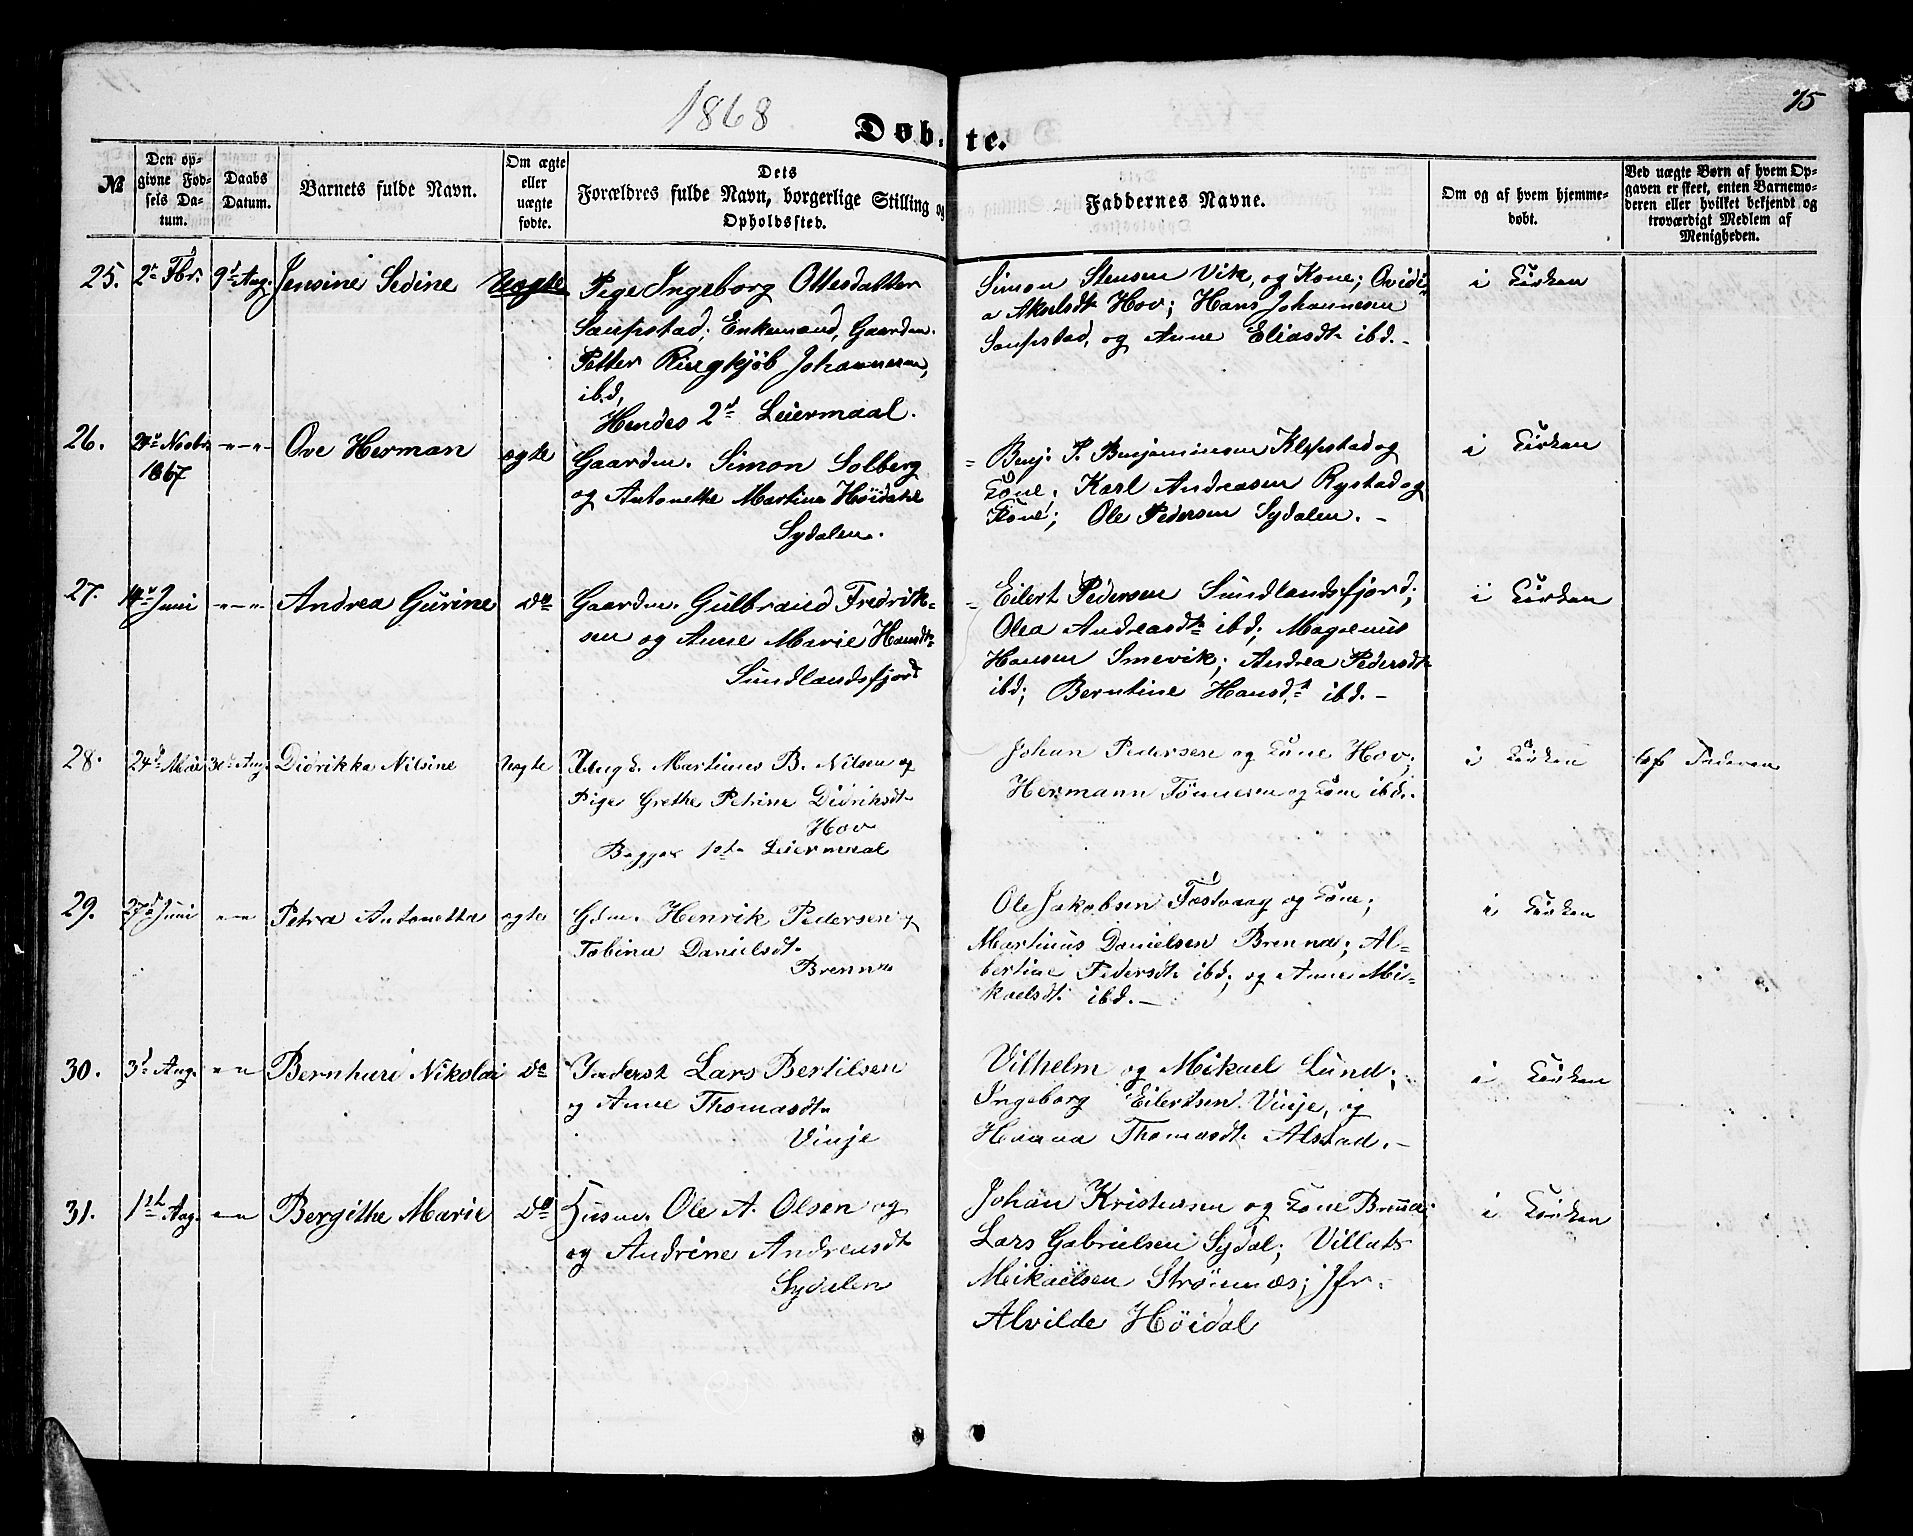 1868
75
Døbte.
№
Den opgivne Fødsels Datum.
Daabs Datum.
Barnets fulde Navn.
Om ægte eller uægte fødte.
Dets Forældres fulde Navn, borgerlige Stilling og Opholdssted.
Faddernes Navne.
Om og af hvem hjemmedøbt.
Ved uægte Børn af hvem Opgaven er skeet, enten Barnemoderen eller hvilket bekjendt og troværdigt Medlem af Menigheden.
25. 2d Fbr. 9d Aug. Jensine Sedine Uægte
Pige Ingeborg Ottesdatter
Saupstad; Enkemand, Gaardm.
Petter Ringkjøb Johannesen,
ibd,
Hendes 2d Leiermaal.
Simon Stensen Vik, og Kone; Ovidi-
a Akselsdt Hov; Hans Johannesen
Saupstad, og Anne Eliasdt ibd.-
i Kirken
26. Novbr. 1867 -"-"- Ove Herman ægte
Gaardm. Simon Solberg
og Antonette Martine Høidahl
Sydalen.
Benj. P. Benjaminsen Klepstad og
Kone; Karl Andreasen Rystad og
Kone; Ole Pedersen Sydalen.-
i Kirken
27. 14d Juni -"-"- Andrea Gurine do
Gaardm. Gulbrand Fredrik-
sen og Anne Marie Hansdt
Sundlandsfjord
Eilert Pedersen Sundlandsfjord;
Olea Andreasdt ibd; Magnus
Hansen Smevik; Andrea Pedersdt
ibd; Berntine Hansdt ibd.-
i Kirken
28. 24d Mai 30d Aug. Didrikka Nilsine uægte
Ungk. Martinus B. Nilsen og
Pige Grethe Petrine Didriksdt
Hov
Begges 1ste Leiermaal
Johan Pedersen og Kone Hov;
Hermann Tønnesen og Kone ibd.
i Kirken
af Faderen
29. 27d Juni -"- Petra Antonetta ægte
Gdm. Henrik Pedersen og
Tobina Danielsdt.
Brenna
Ole Jakobsen Festvaag og Kone;
Martinus Danielsen Brenna; Al-
bertine Pedersdt. ibd; og Anne Mi-
kaelsdt. ibd.-
i Kirken
30. 3d Aug. -"- Bernhard Nikolai do
Inderst Lars Bertilsen
og Anne Thomasdt.
Vinje
Vilhelm og Mikael Lund;
Ingeborg Eilertsen Vinje, og
Hanna Thomasdt. Alstad.-
i Kirken
31. 1ste Aug. -"- Bergithe Marie do
Husm. Ole A. Olsen og
og Andrine Andreasdt
Sydalen
Johan Kristensen og Kone
Lars Gabrielsen Sydal; Villats
Mikaelsen Strømnæs; Jfr.
Alvilde Høidal
i Kirken